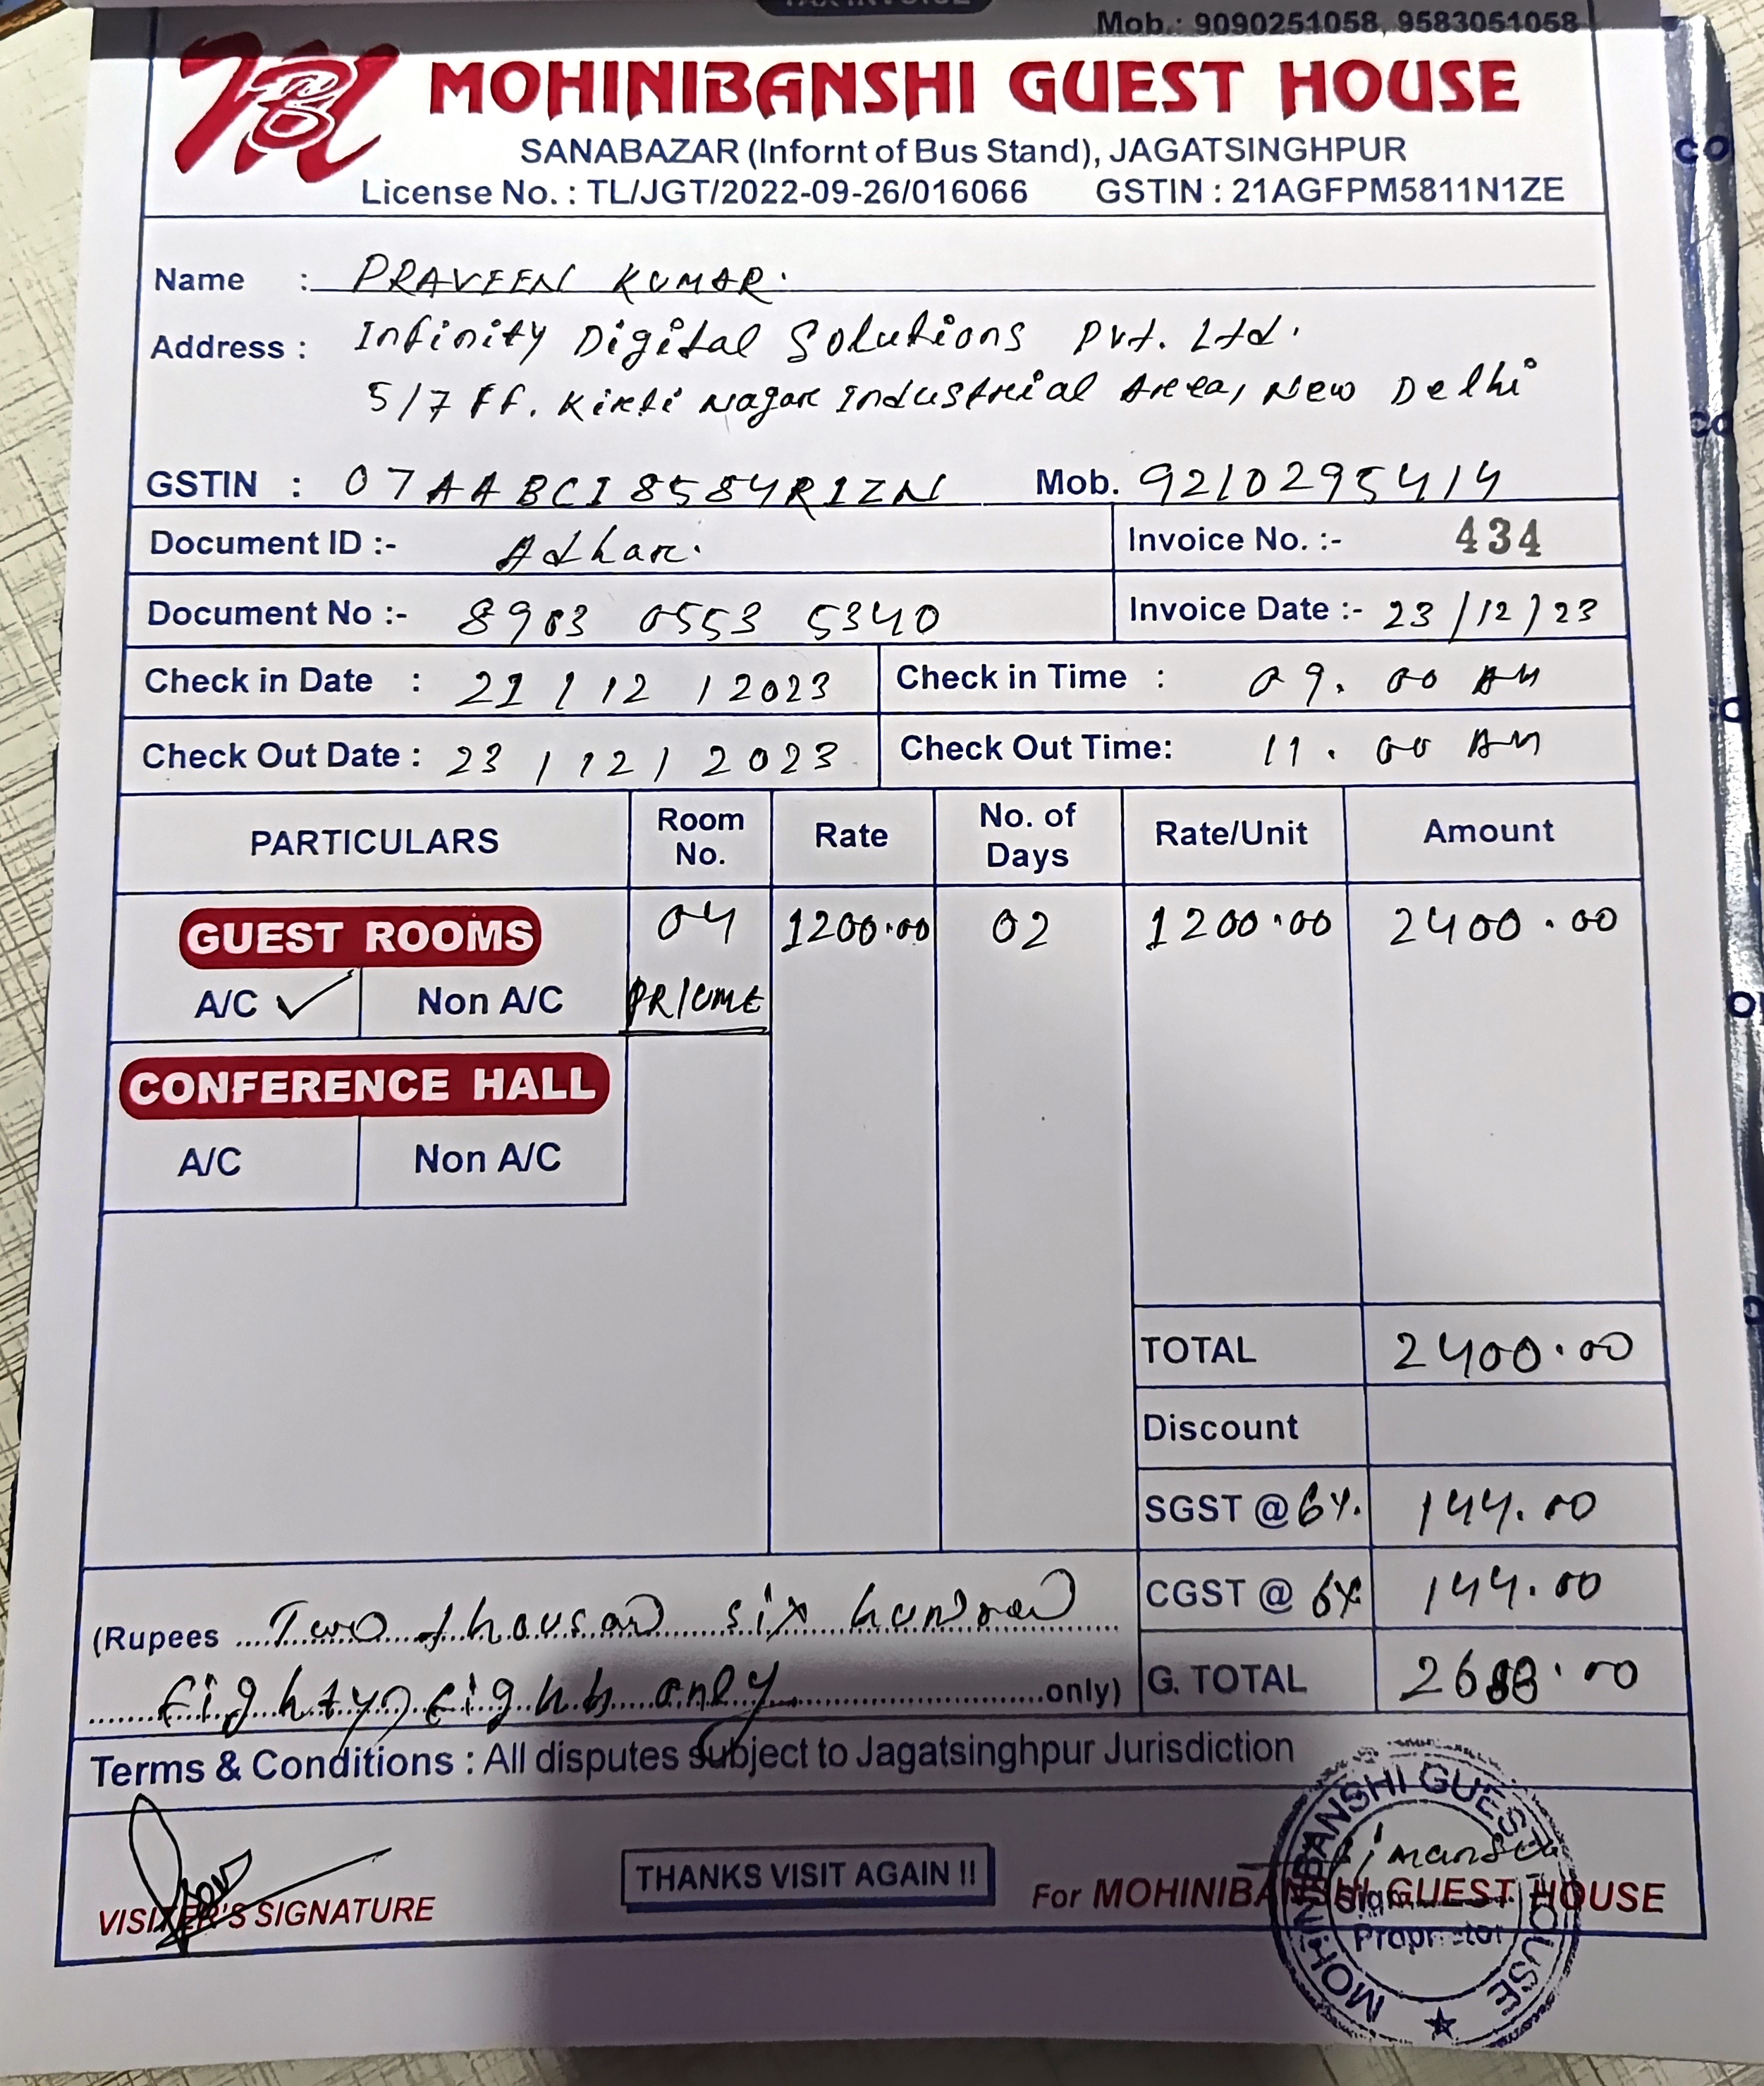 TAX INVOICE
Mob.: 9090251058, 9583051058
MOHINIBANSHI GUEST HOUSE
SANABAZAR (Infornt of Bus Stand), JAGATSINGHPUR
License No. : TL/JGT/2022-09-26/016066 GSTIN : 21AGFPM5811N1ZE
Name : PRAVEEN KUMAR.
Address : Infinity Digital Solutions Pvt. Ltd.
5/7 FF. Kirti Nagar Industrial Area, New Delhi
GSTIN : 07AABCI8584R1ZN Mob. 9210295414
Document ID :- Adhar. Invoice No. :- 434
Document No :- 8903 0553 5340 Invoice Date :- 23/12/23
Check in Date : 21/12/2023 Check in Time : 09.00 AM
Check Out Date : 23/12/2023 Check Out Time: 11.00 AM
PARTICULARS Room No. Rate No. of Days Rate/Unit Amount
GUEST ROOMS 04 1200.00 02 1200.00 2400.00
A/C ✓ Non A/C
CONFERENCE HALL
A/C Non A/C
TOTAL 2400.00
Discount
SGST @ 6%. 144.00
CGST @ 6% 144.00
(Rupees Two thousand six hundred
Eighty eight only only) G. TOTAL 2688.00
Terms & Conditions : All disputes subject to Jagatsinghpur Jurisdiction
VISITER'S SIGNATURE
THANKS VISIT AGAIN !!
For MOHINIBANSHI GUEST HOUSE
MOHINIBANSHI GUEST HOUSE
Proprietor